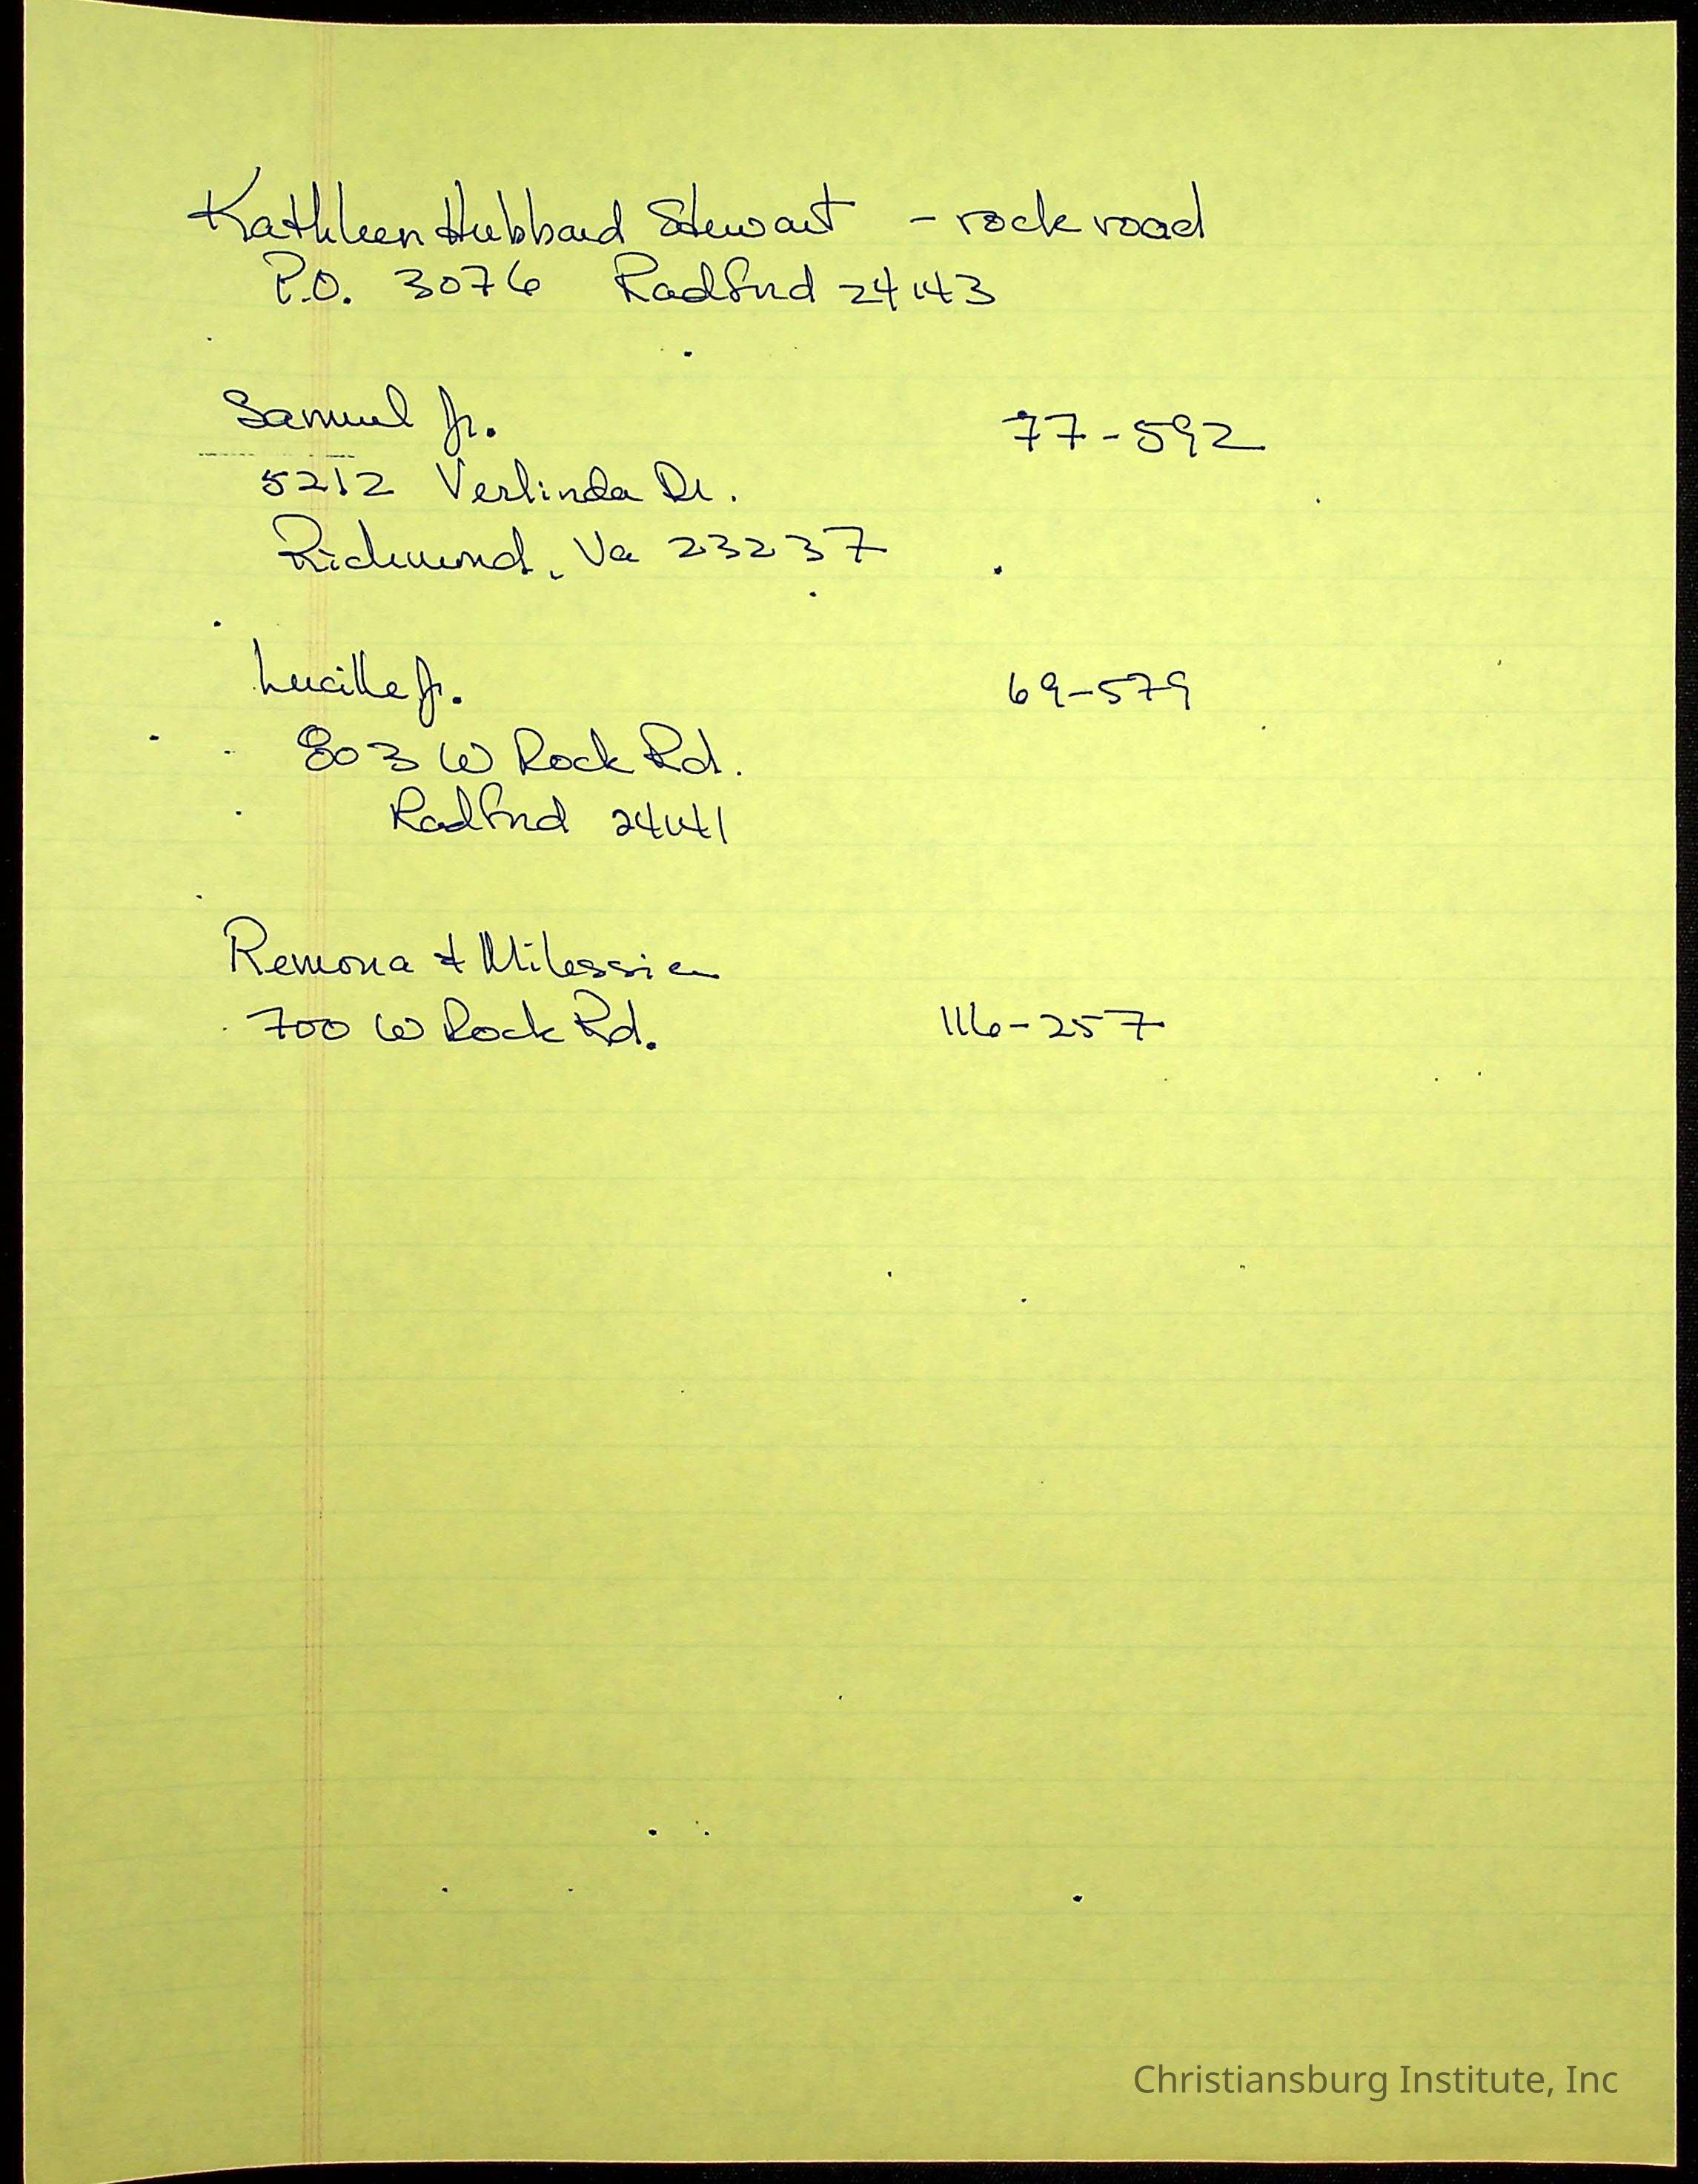 Kathleen Hubbard Stewart - rock road
P.O. 3076 Radford 24143
Samuel Jr. 77-592
5212 Verlinda Dr.
Richmond, Va 23237
Lucille Jr. 69-579
803 W Rock Rd.
Radford 24141
Remona &
700 W Rock Rd. 116-257
Christiansburg Institute, Inc